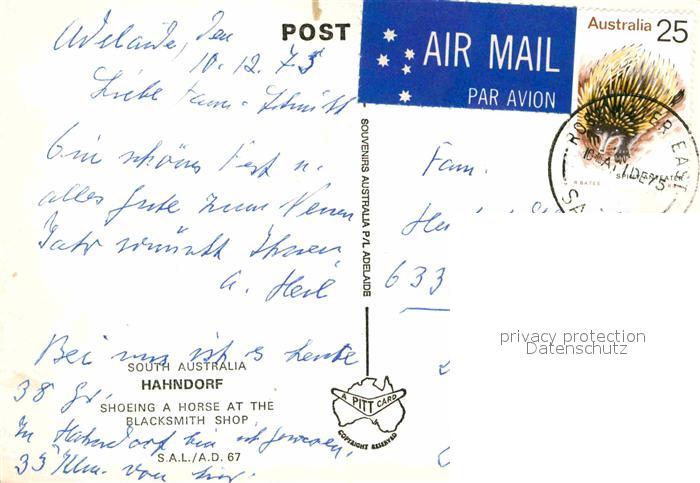 Adelaide, den
10.12.75
Liebe Fam. Schmitt
Ein schönes Fest u.
alles gute zum Neuen
Jahr wünscht Ihnen
A. Heil
Bei uns ist es heute
38 Gr.
In Hahndorf bin ich gewesen,
33 Klm. von hier.
SOUTH AUSTRALIA
HAHNDORF
SHOEING A HORSE AT THE
BLACKSMITH SHOP
S.A.L./A.D. 67
POST
SOUVENIRS AUSTRALIA P/L ADELAIDE
A PITT CARD
COPYRIGHT RESERVED
AIR MAIL
PAR AVION
Australia 25
SPINY ANTEATER
R BATES
EAST
11DE75
Fam.
633
privacy protection
Datenschutz